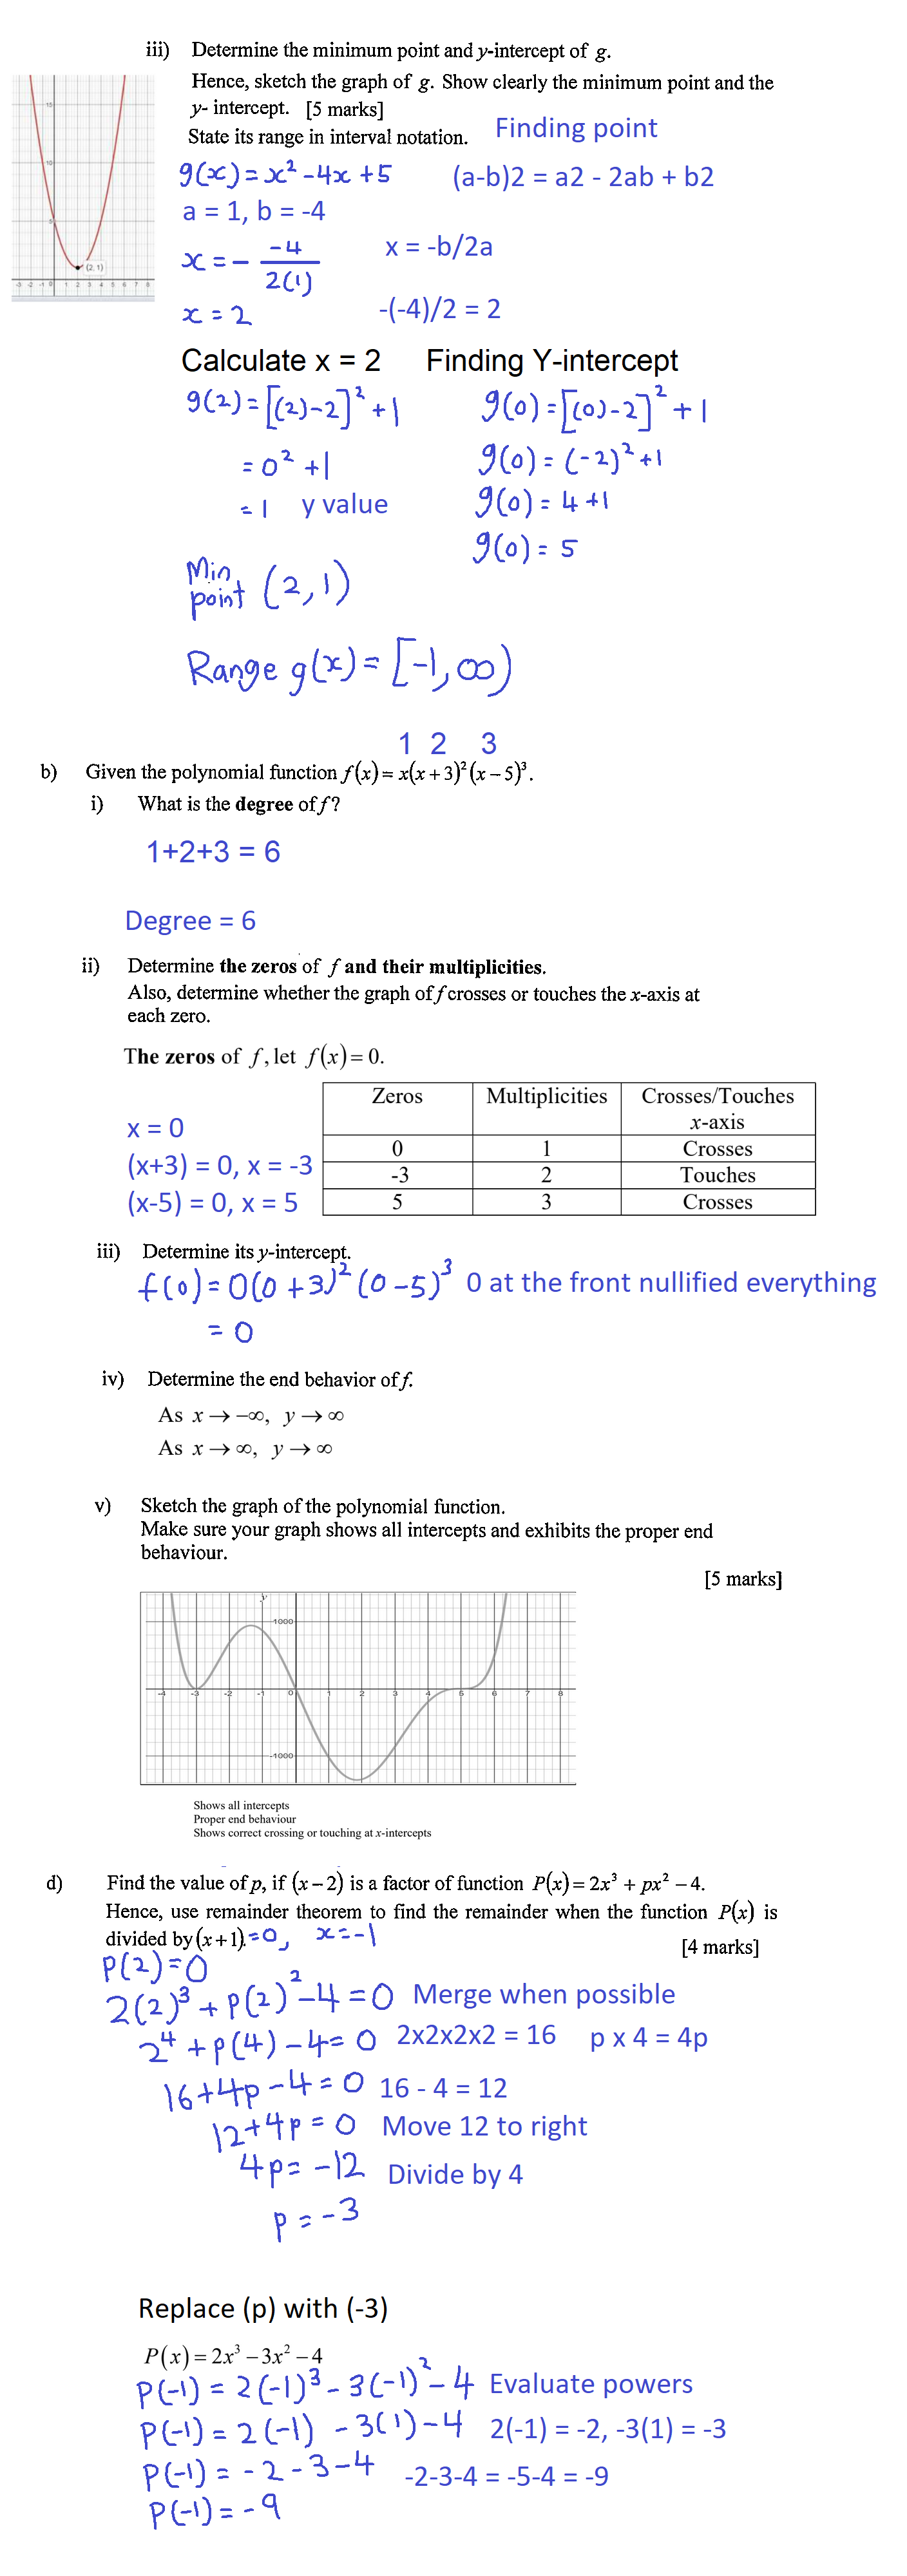 iii) Determine the minimum point and y-intercept of g.
Hence, sketch the graph of g. Show clearly the minimum point and the
y- intercept. [5 marks]
State its range in interval notation. Finding point
g(x) = x² - 4x + 5 (a-b)2 = a2 - 2ab + b2
a = 1, b = -4
x = - -4 / 2(1) x = -b/2a
x = 2 -(-4)/2 = 2
15
10
5
(2, 1)
-3 -2 -1 0 1 2 3 4 5 6 7 8
Calculate x = 2 Finding Y-intercept
g(2) = [(2)-2]² + 1 g(0) = [(0)-2]² + 1
= 0² + 1 g(0) = (-2)² + 1
= 1 y value g(0) = 4 + 1
g(0) = 5
Min
point (2, 1)
Range g(x) = [-1, ∞)
1 2 3
b) Given the polynomial function f(x) = x(x + 3)²(x − 5)³.
i) What is the degree of f?
1+2+3 = 6
Degree = 6
ii) Determine the zeros of f and their multiplicities.
Also, determine whether the graph of f crosses or touches the x-axis at
each zero.
The zeros of f, let f(x) = 0.
Zeros Multiplicities Crosses/Touches
x-axis
x = 0
0 1 Crosses
(x+3) = 0, x = -3
-3 2 Touches
(x-5) = 0, x = 5
5 3 Crosses
iii) Determine its y-intercept.
f(0) = 0(0 + 3)²(0 - 5)³ 0 at the front nullified everything
= 0
iv) Determine the end behavior of f.
As x → −∞, y → ∞
As x → ∞, y → ∞
v) Sketch the graph of the polynomial function.
Make sure your graph shows all intercepts and exhibits the proper end
behaviour.
[5 marks]
y
1000
-4 -3 -2 -1 0 1 2 3 4 5 6 7 8
-1000
Shows all intercepts
Proper end behaviour
Shows correct crossing or touching at x-intercepts
d) Find the value of p, if (x − 2) is a factor of function P(x) = 2x³ + px² − 4.
Hence, use remainder theorem to find the remainder when the function P(x) is
divided by (x + 1). = 0, x = -1
[4 marks]
P(2) = 0
2(2)³ + p(2)² - 4 = 0 Merge when possible
2⁴ + p(4) - 4 = 0 2x2x2x2 = 16 p x 4 = 4p
16 + 4p - 4 = 0 16 - 4 = 12
12 + 4p = 0 Move 12 to right
4p = -12 Divide by 4
p = -3
Replace (p) with (-3)
P(x) = 2x³ − 3x² − 4
P(-1) = 2(-1)³ - 3(-1)² - 4 Evaluate powers
P(-1) = 2(-1) - 3(1) - 4 2(-1) = -2, -3(1) = -3
P(-1) = -2 - 3 - 4 -2-3-4 = -5-4 = -9
P(-1) = -9